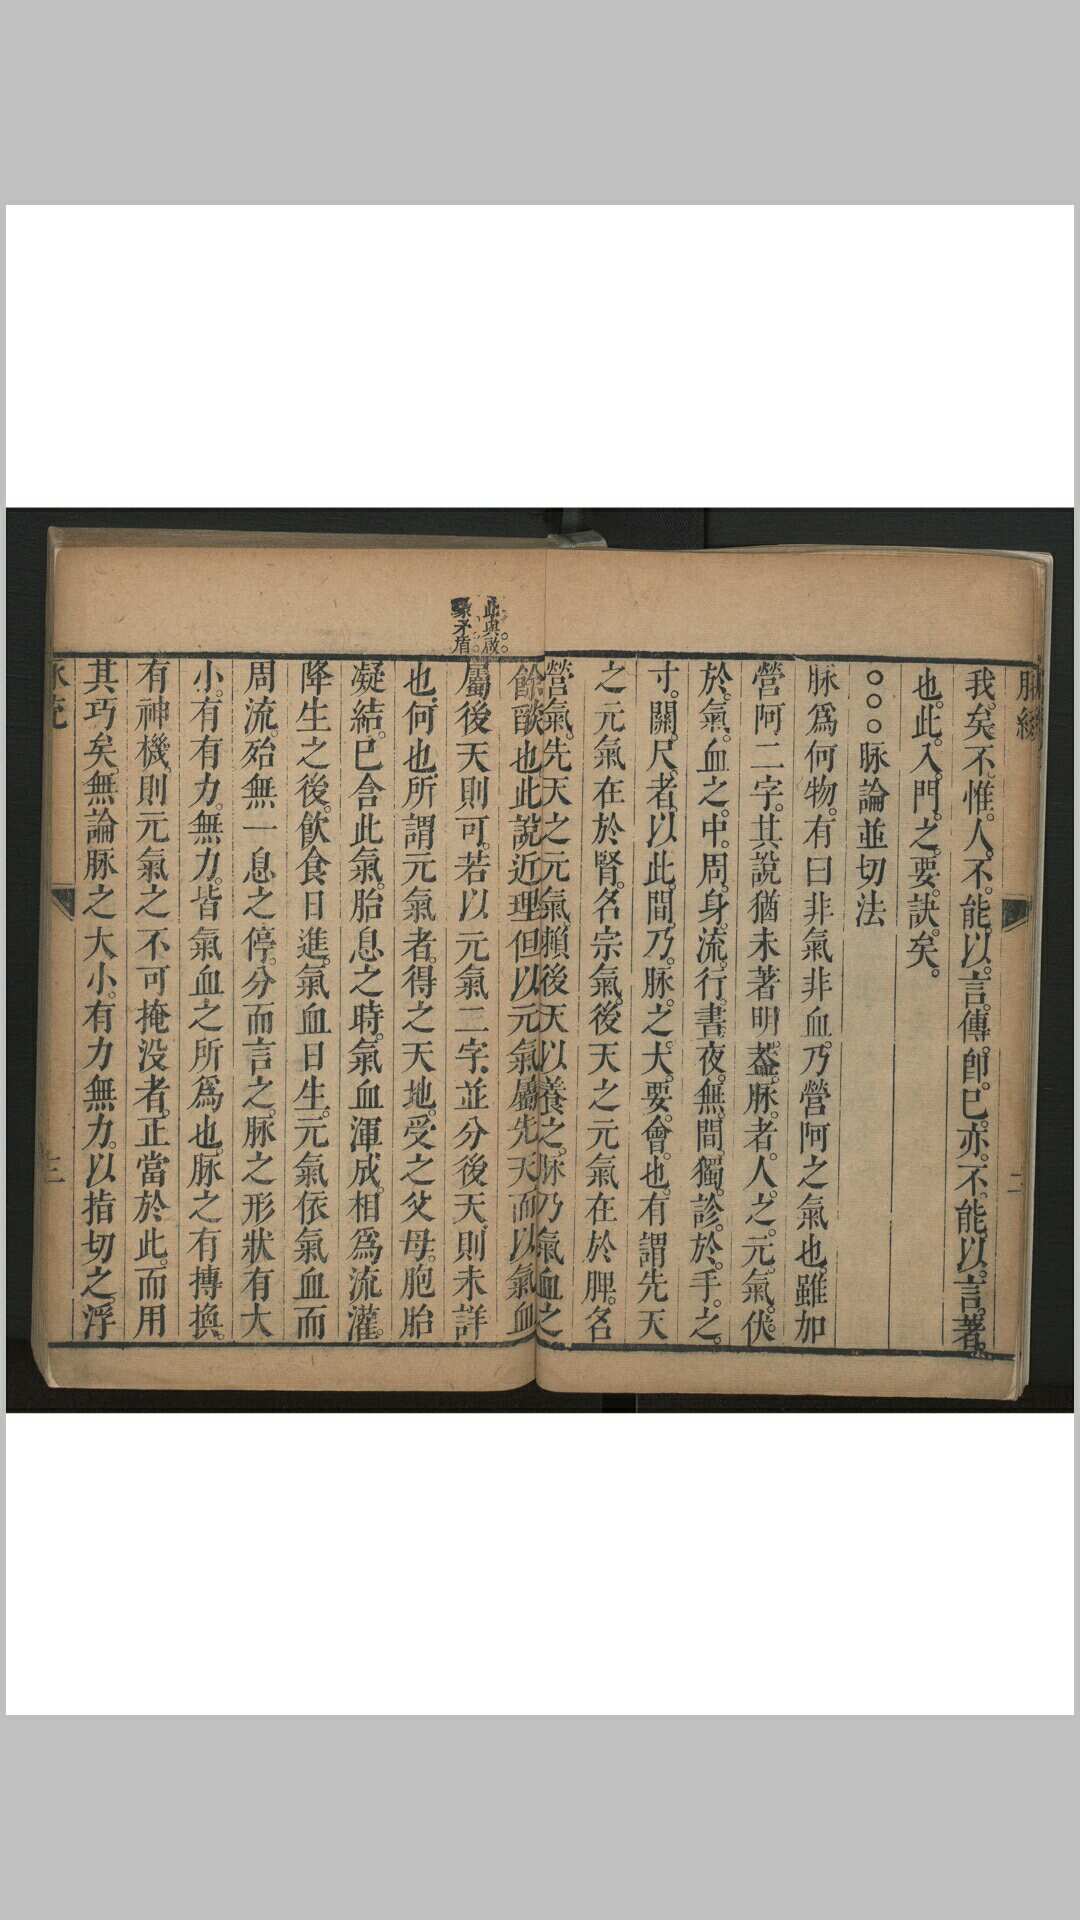 我矣不惟人不能以言傳卽已亦不能以言著
也此入門之要訣矣
○○○脉論並切法
脉爲何物有曰非氣非血乃營阿之氣也雖加
營阿二字其說猶未著明葢脉者人之元氣伏
於氣血之中周身流行晝夜無間獨診於手之
寸關尺者以此間乃脉之大要會也有謂先天
之元氣在於腎名宗氣後天之元氣在於脾名
營氣先天之元氣賴後天以養之脉乃氣血之
餘㷔也此說近理但以元氣屬先天而以氣血
屬後天則可若以元氣二字並分後天則未詳
也何也所謂元氣者得之天地受之父母胞胎
凝結已含此氣胎息之時氣血渾成相爲流灌
降生之後飲食日進氣血日生元氣依氣血而
周流殆無一息之停分而言之脉之形狀有大
小有有力無力皆氣血之所爲也脉之有摶換
有神機則元氣之不可掩没者正當於此而用
其巧矣無論脉之大小有力無力以指切之浮
此與啟
蒙矛盾
二
三